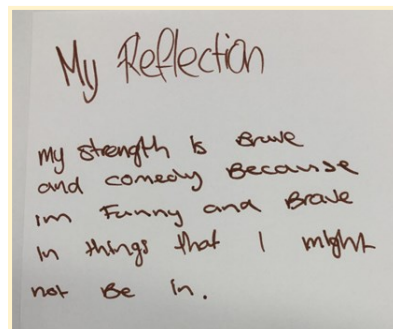 My Reflection
my strength is Brave
and comedy Because
im Funny and Brave
in things that I might
not Be in.